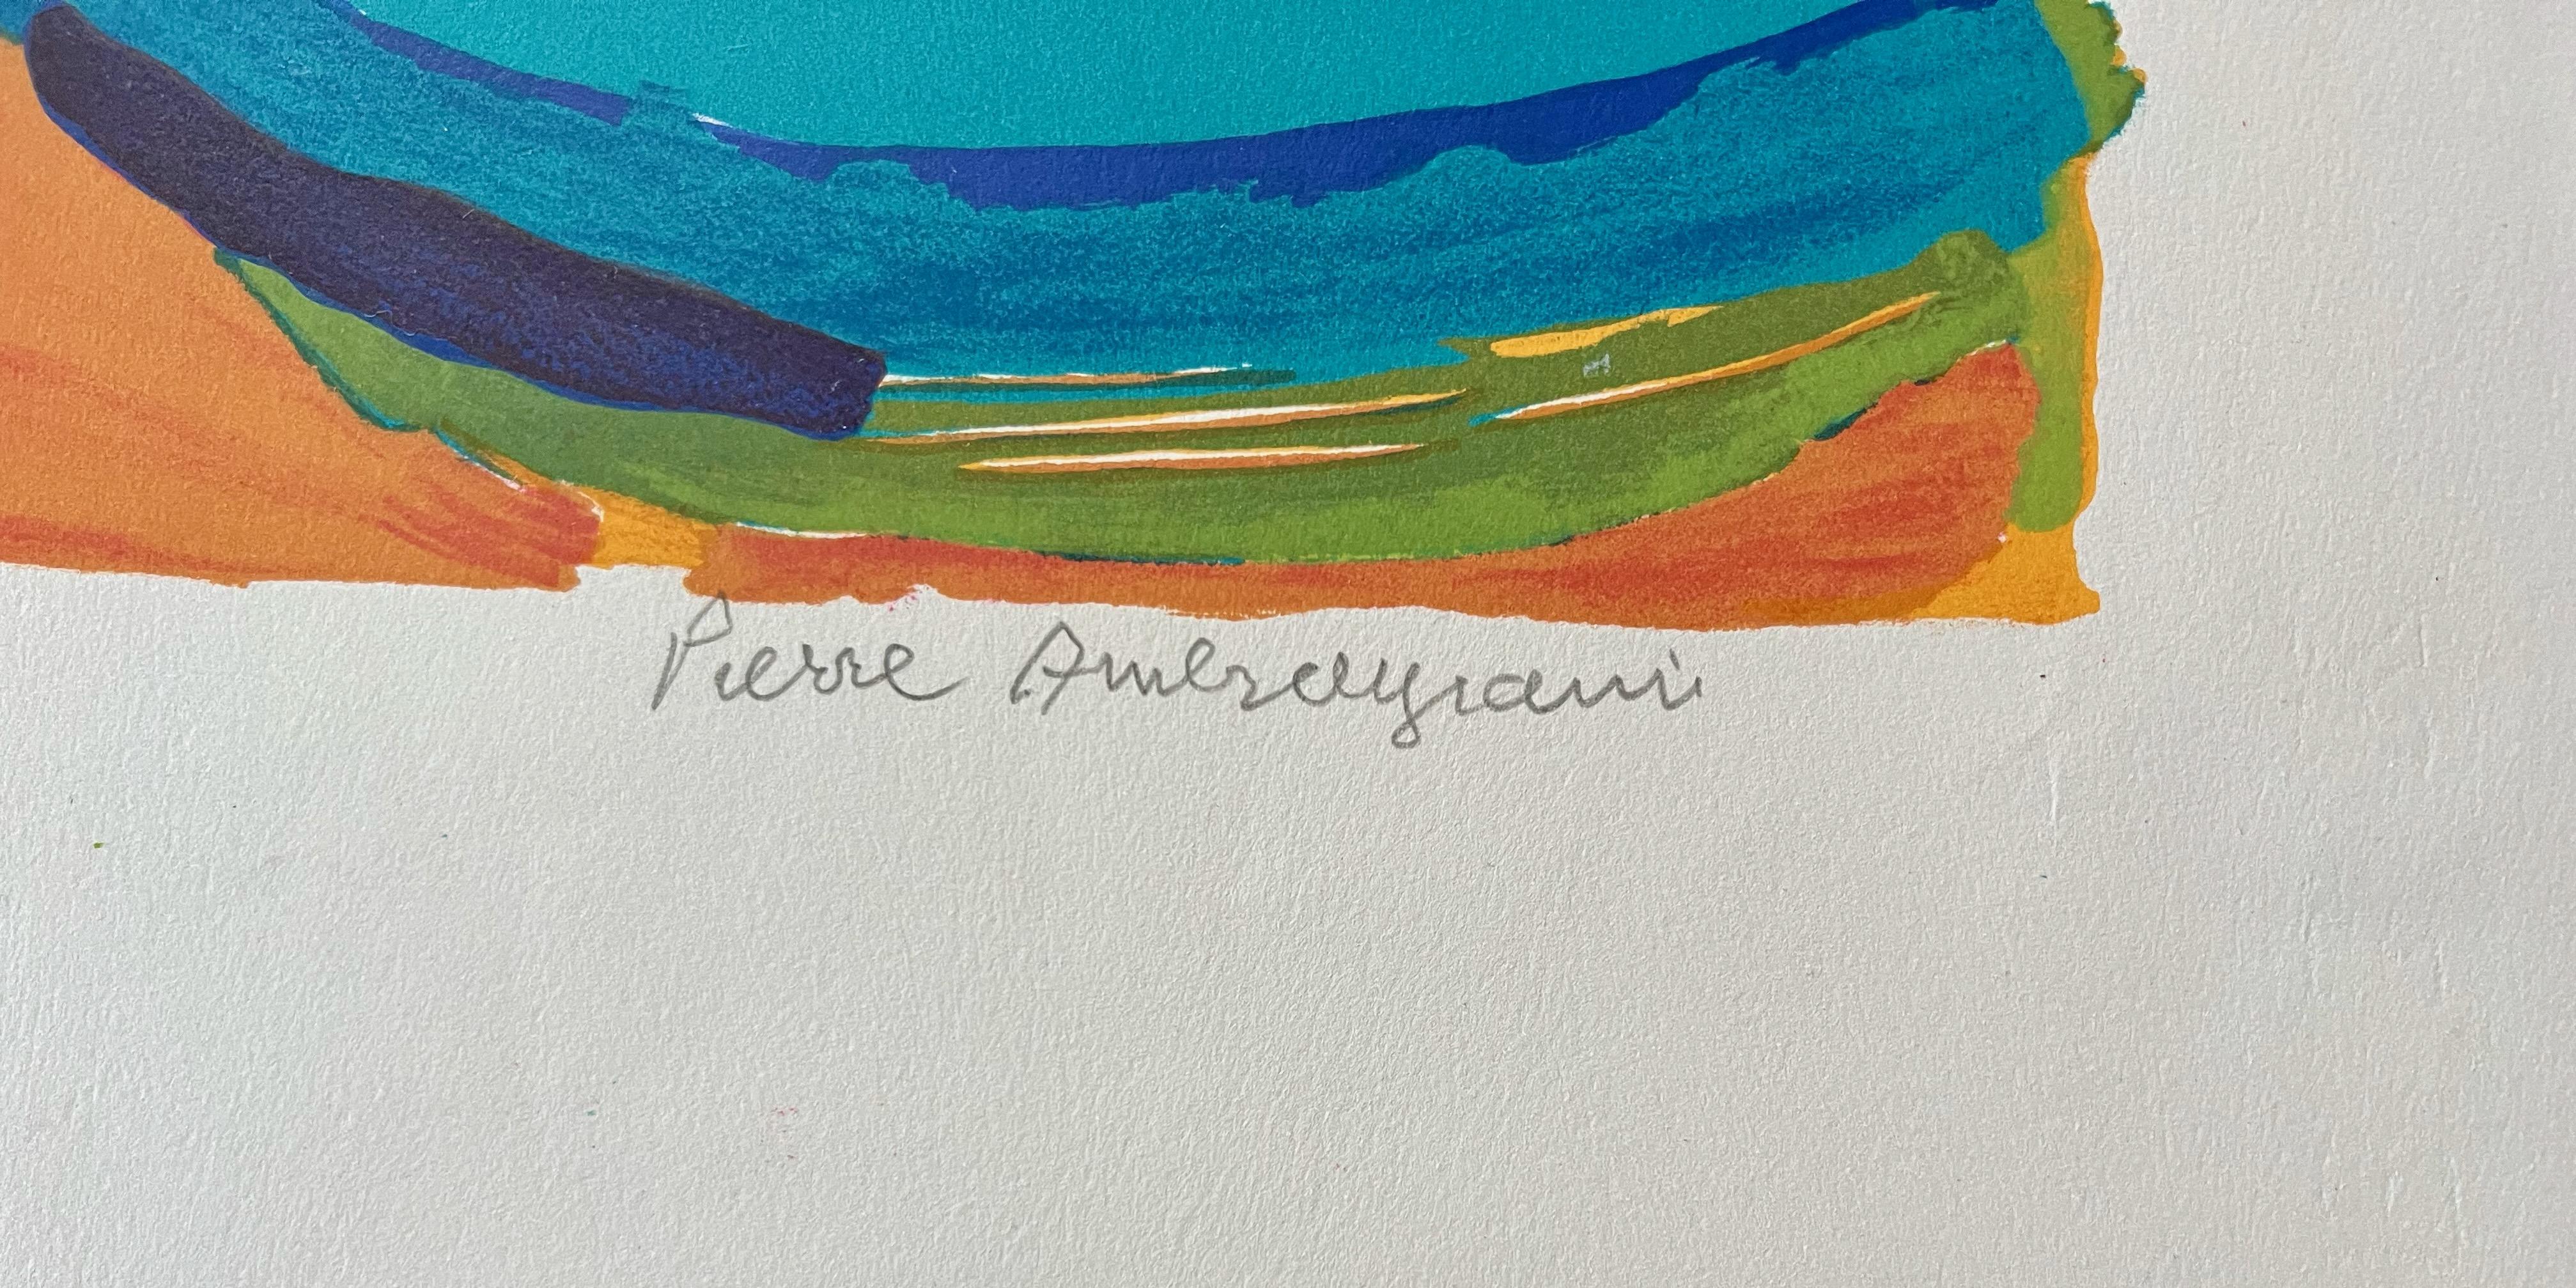 Pierre Ambrogiani